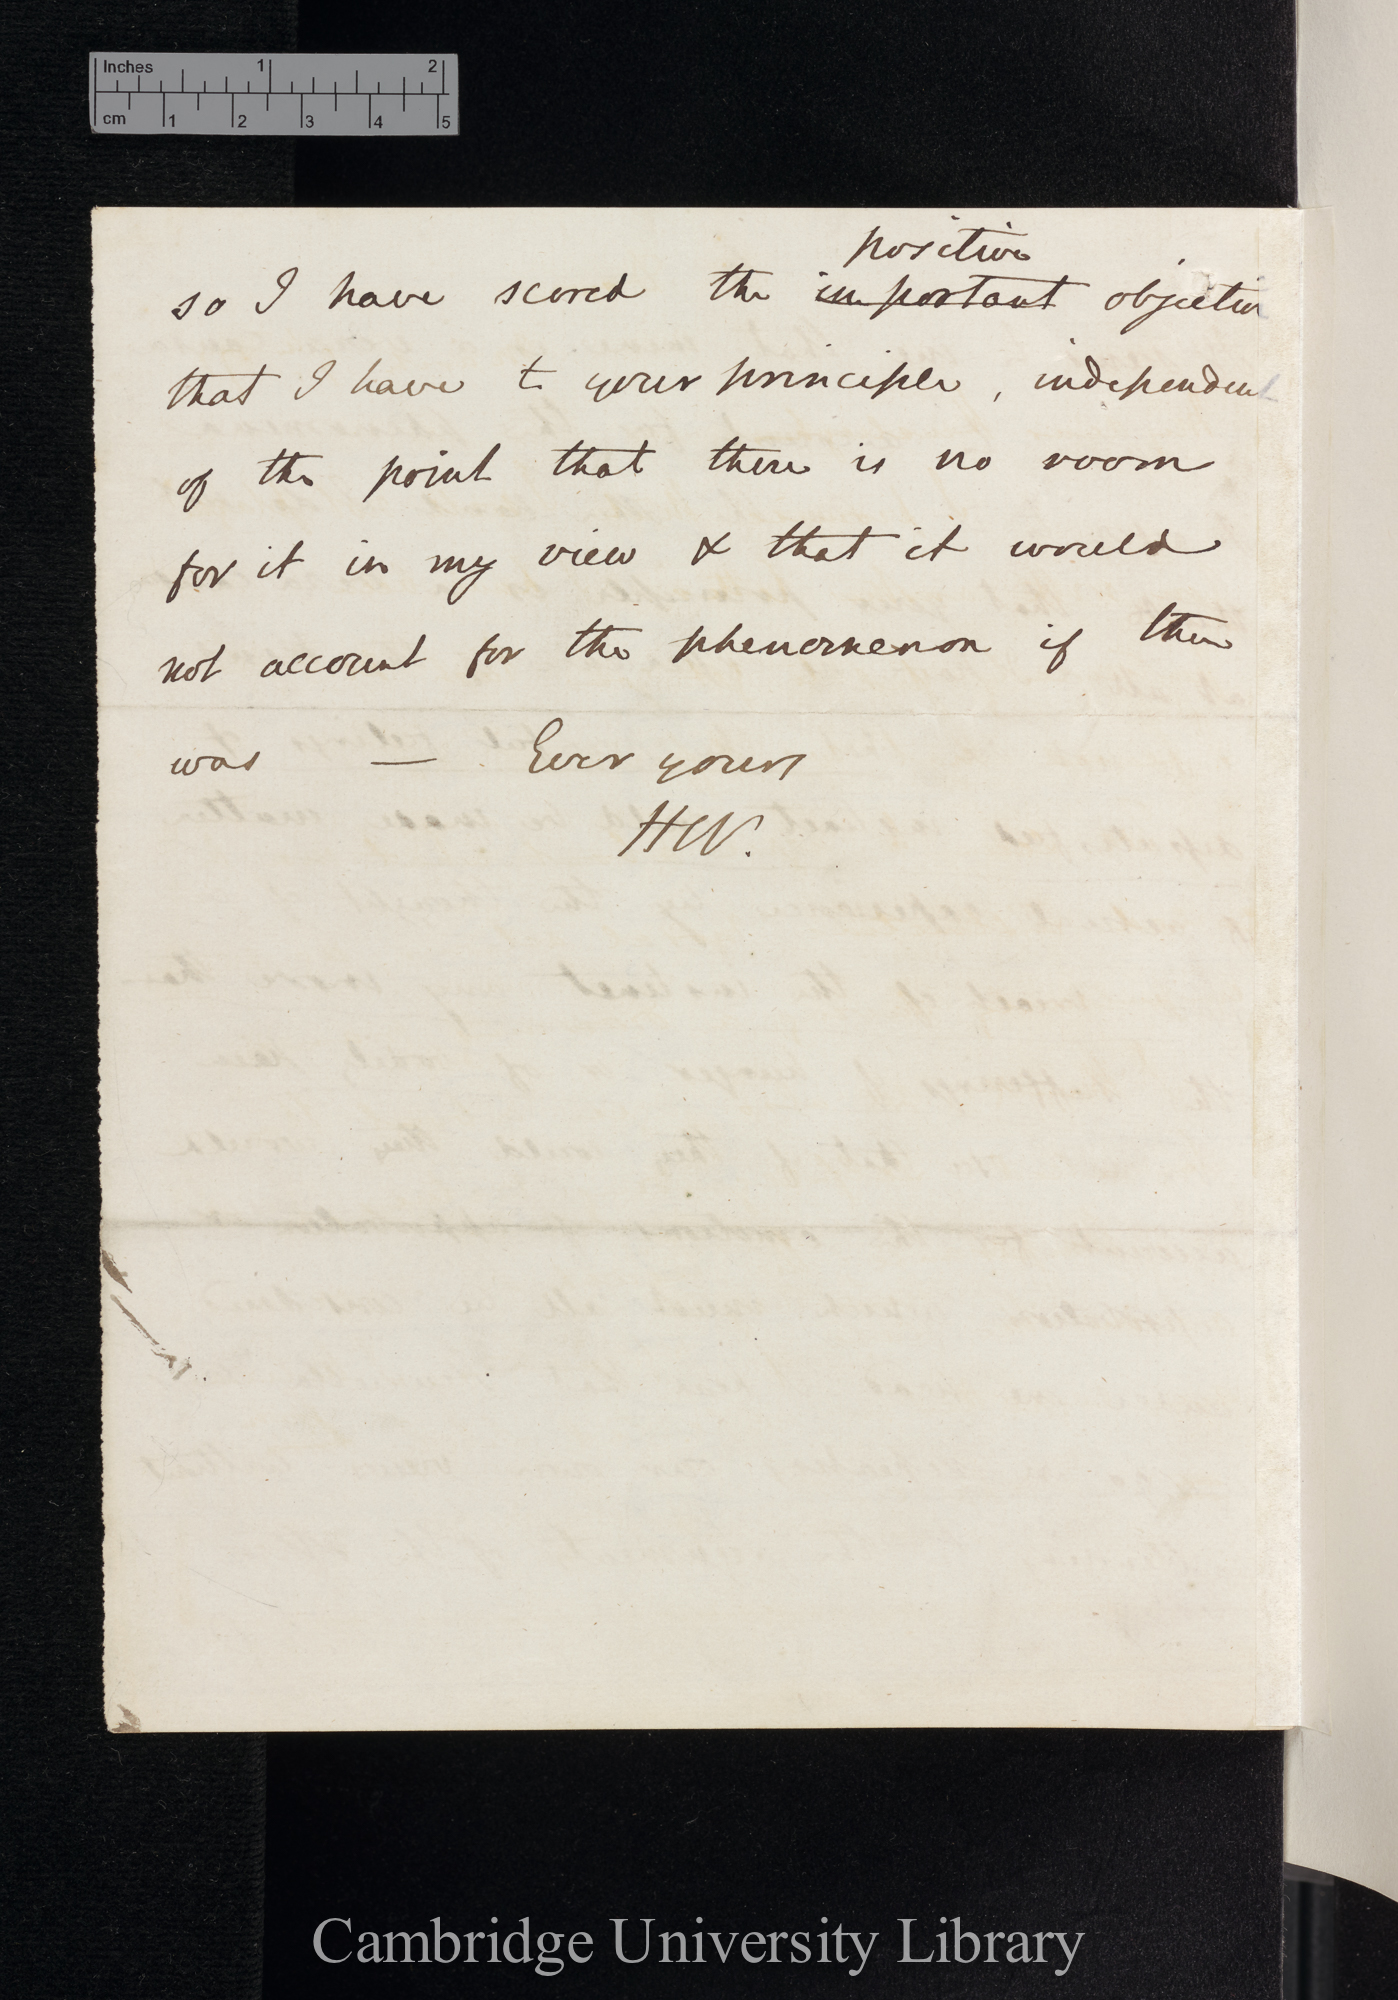 Inches 1 2
cm 1 2 3 4 5
positive
so I have scored the important objection
that I have to your principle, independent
of the point that there is no room
for it in my view & that it would
not account for the phenomenon if there
was — Ever yours
HW.
Cambridge University Library